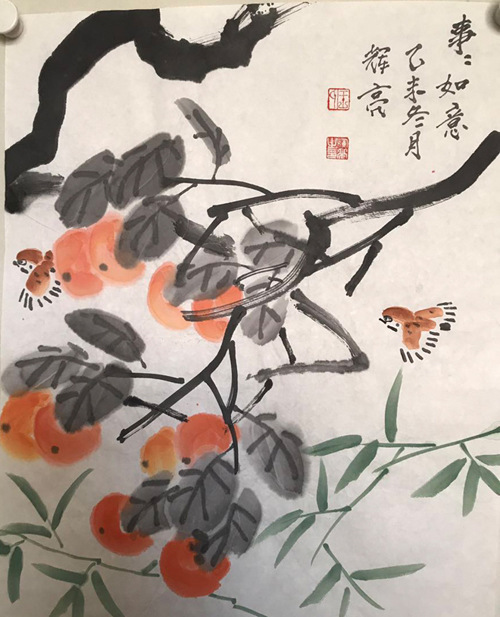 事〻如意
乙未冬月
辉亮